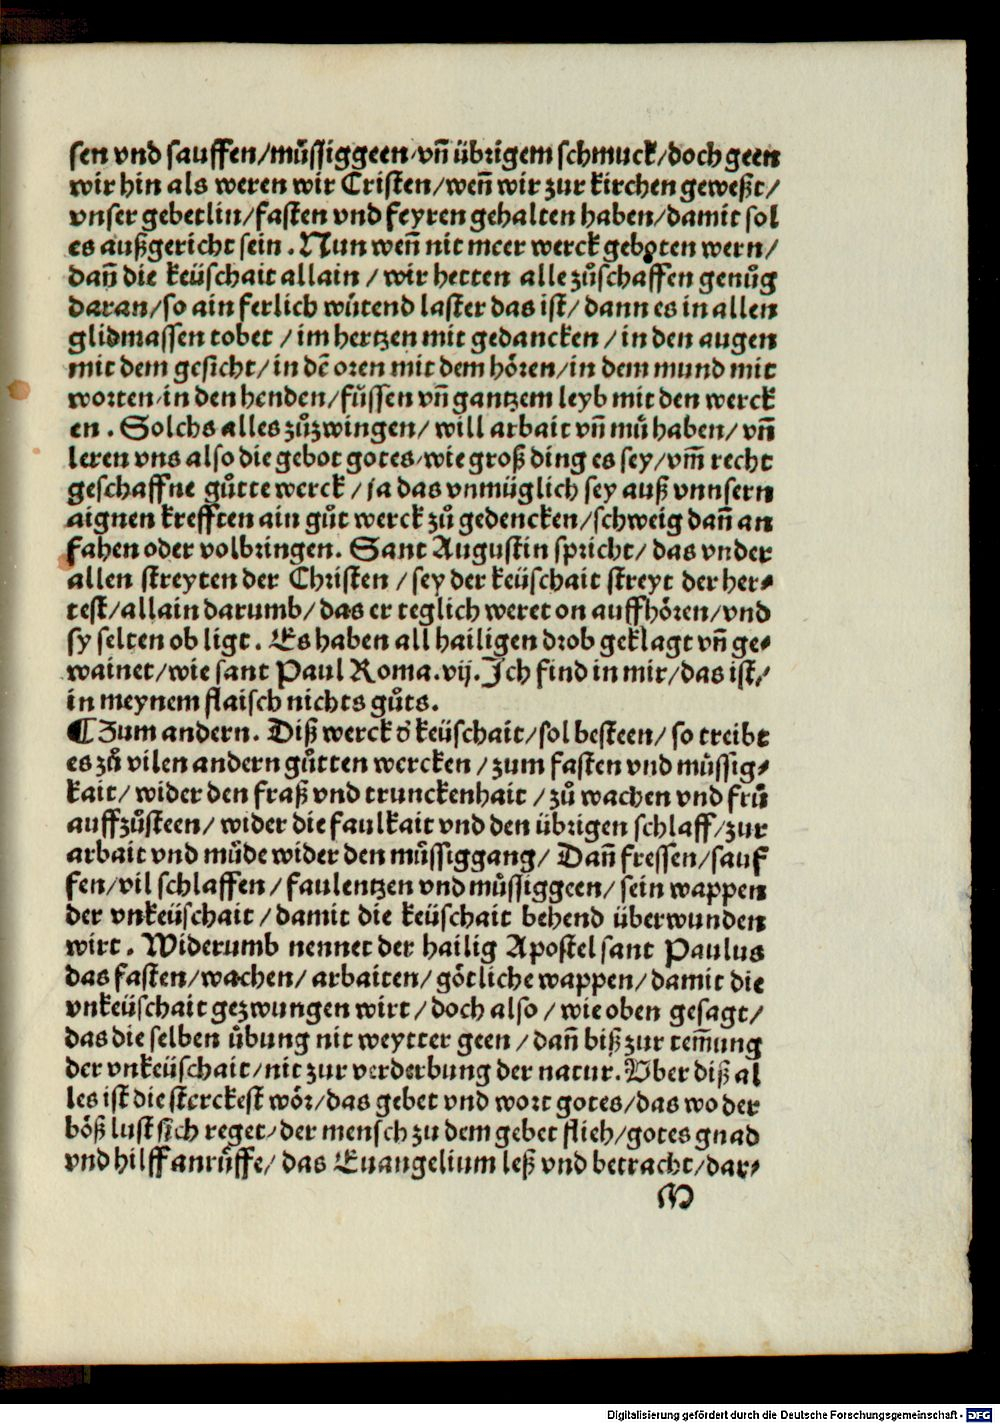 sen vnd sauffen/müssiggeen/vn̄ übrigem schmuck/doch geen
wir hin als weren wir Cristen/wen̄ wir zur kirchen geweßt/
vnser gebetlin/fasten vnd feyren gehalten haben/damit sol
es außgericht sein. Nun wen̄ nit meer werck geboten wern/
dan̄ die keüschait allain/wir hetten alle zůschaffen genůg
daran/so ain ferlich wütend laster das ist/dann es in allen
glidmassen tobet/im hertzen mit gedancken/in den augen
mit dem gesicht/in dē oren mit dem hören/in dem mund mit
worten/in den henden/füssen vn̄ gantzem leyb mit den werck
en. Solchs alles zůzwingen/will arbait vn̄ mů haben/vn̄
leren vns also die gebot gotes/wie groß ding es sey/vm̄ recht
geschaffne gůtte werck/ja das vnmüglich sey auß vnnsern
aignen krefften ain gůt werck zů gedencken/schweig dan̄ an
fahen oder volbringen. Sant Augustin spricht/das vnder
allen streyten der Christen/sey der keüschait streyt der her⸗
test/allain darumb/das er teglich weret on auffhören/vnd
sy selten ob ligt. Es haben all hailigen drob geklagt vn̄ ge⸗
wainet/wie sant Paul Roma.vij. Ich find in mir/das ist/
in meynem flaisch nichts gůts.
¶ Zum andern. Diß werck d' keüschait/sol besteen/so treibt
es zů vilen andern gůtten wercken/zum fasten vnd müssig⸗
kait/wider den fraß vnd trunckenhait/zů wachen vnd frů
auffzůsteen/wider die faulkait vnd den übrigen schlaff/zur
arbait vnd müde wider den müssiggang/Dan̄ fressen/sauf
fen/vil schlaffen/faulentzen vnd müssiggeen/sein wappen
der vnkeüschait/damit die keüschait behend überwunden
wirt. Widerumb nennet der hailig Apostel sant Paulus
das fasten/wachen/arbaiten/götliche wappen/damit die
vnkeüschait gezwungen wirt/doch also/wie oben gesagt/
das die selben übung nit weytter geen/dan̄ biß zur tem̄ung
der vnkeüschait/nit zur verderbung der natur. Vber diß al
les ist die sterckest wör/das gebet vnd wort gotes/das wo der
böß lust sich reget/der mensch zu dem gebet flieh/gotes gnad
vnd hilff anrüffe/das Euangelium leß vnd betracht/dar⸗
M
Digitalisierung gefördert durch die Deutsche Forschungsgemeinschaft - DFG